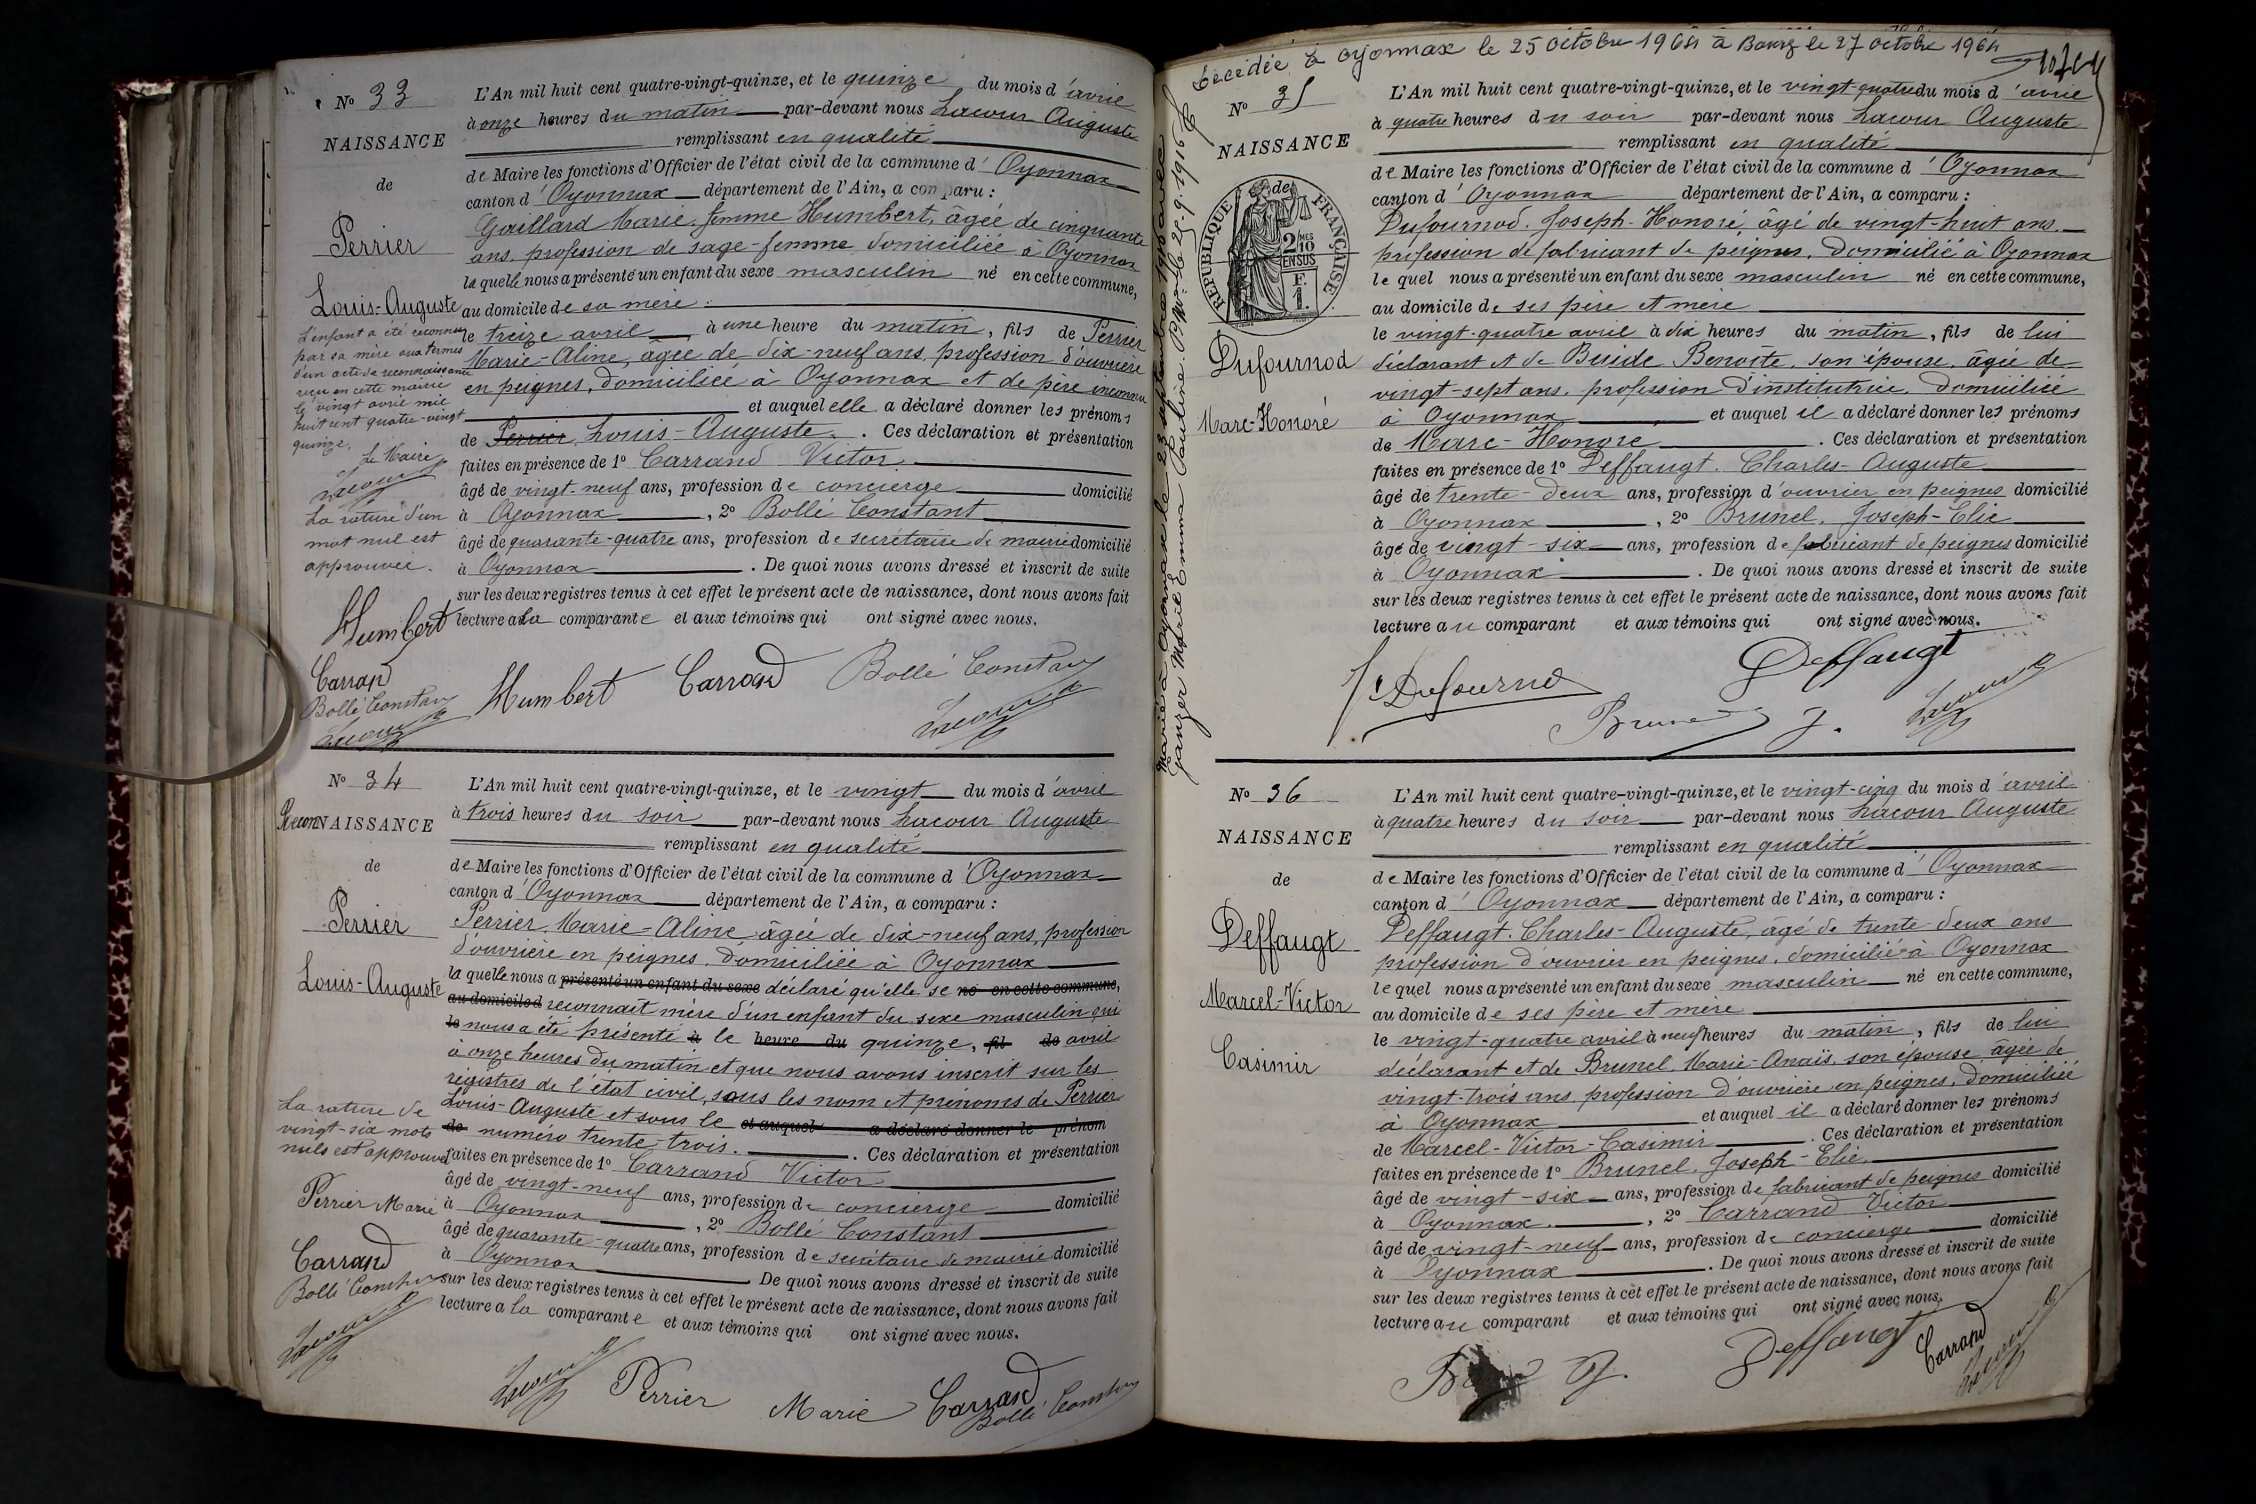 Nº 33
NAISSANCE
de
Perrier
Louis-Auguste
L'enfant a été reconnu
par sa mère aux termes
d'un acte de reconnaissance
reçu en cette mairie
le vingt avril mil
huit cent quatre-vingt
quinze.
Le Maire
Lacour
La rature d'un
mot nul est
approuvée.
Humbert
Carrand
Bollé Constant
Lacour
L'An mil huit cent quatre-vingt-quinze, et le quinze du mois d'avril
à onze heures du matin par-devant nous Lacour Auguste
remplissant en qualité
de Maire les fonctions d'Officier de l'état civil de la commune d'Oyonnax
canton d'Oyonnax département de l'Ain, a comparu :
Gaillard Marie, femme Humbert, âgée de cinquante
ans, profession de sage-femme domiciliée à Oyonnax
laquelle nous a présenté un enfant du sexe masculin né en cette commune,
au domicile de sa mère
le treize avril à une heure du matin, fils de Perrier
Marie-Aline, âgée de dix-neuf ans, profession d'ouvrière
en peignes, domiciliée à Oyonnax et de père inconnu
et auquel elle a déclaré donner les prénoms
de Perrier Louis-Auguste. Ces déclaration et présentation
faites en présence de 1º Carrand Victor
âgé de vingt-neuf ans, profession de concierge domicilié
à Oyonnax, 2º Bollé Constant
âgé de quarante-quatre ans, profession de secrétaire de mairie domicilié
à Oyonnax. De quoi nous avons dressé et inscrit de suite
sur les deux registres tenus à cet effet le présent acte de naissance, dont nous avons fait
lecture à la comparante et aux témoins qui ont signé avec nous.
Humbert Carrand Bollé Constant
Lacour
Nº 34
ReconNAISSANCE
de
Perrier
Louis-Auguste
La rature de
vingt-six mots
nuls est approuvée
Perrier Marie
Carrand
Bollé Constant
Lacour
L'An mil huit cent quatre-vingt-quinze, et le vingt du mois d'avril
à trois heures du soir par-devant nous Lacour Auguste
remplissant en qualité
de Maire les fonctions d'Officier de l'état civil de la commune d'Oyonnax
canton d'Oyonnax département de l'Ain, a comparu :
Perrier Marie-Aline âgée de dix-neuf ans, profession
d'ouvrière en peignes, domiciliée à Oyonnax
laquelle nous a présenté un enfant du sexe déclaré qu'elle se né en cette commune,
au domicile d reconnaît mère d'un enfant du sexe masculin qui
le nous a été présenté à le heure du quinze, fil de avril
à onze heures du matin et que nous avons inscrit sur les
registres de l'état civil, sous les nom et prénoms de Perrier
Louis-Auguste et sous le et auquel a déclaré donner le prénom
de numéro trente-trois. Ces déclaration et présentation
faites en présence de 1º Carrand Victor
âgé de vingt-neuf ans, profession de concierge domicilié
à Oyonnax, 2º Bollé Constant
âgé de quarante-quatre ans, profession de secrétaire de mairie domicilié
à Oyonnax. De quoi nous avons dressé et inscrit de suite
sur les deux registres tenus à cet effet le présent acte de naissance, dont nous avons fait
lecture à la comparante et aux témoins qui ont signé avec nous.
Lacour Perrier Marie Carrand
Bollé Constant
Décédée à Oyonnax le 25 octobre 1964 à Bourg le 27 octobre 1964
Marié à Oyonnax le 23 septembre 1916 avec
Ganzer Marie Emma Pauline. 25-9-1916
Nº 35
NAISSANCE
de
RÉPUBLIQUE FRANÇAISE
2/10 MES
EN SUS
F.
1.
Dufournod
Marc-Honoré
L'An mil huit cent quatre-vingt-quinze, et le vingt-quatre du mois d'avril
à quatre heures du soir par-devant nous Lacour Auguste
remplissant en qualité
de Maire les fonctions d'Officier de l'état civil de la commune d'Oyonnax
canton d'Oyonnax département de l'Ain, a comparu :
Dufournod. Joseph-Honoré, âgé de vingt-huit ans
profession de fabricant de peignes, domicilié à Oyonnax
lequel nous a présenté un enfant du sexe masculin né en cette commune,
au domicile de ses père et mère
le vingt-quatre avril à dix heures du matin, fils de lui
déclarant et de Buide Benoîte, son épouse, âgée de
vingt-sept ans, profession d'institutrice, domiciliée
à Oyonnax et auquel il a déclaré donner les prénoms
de Marc-Honoré. Ces déclaration et présentation
faites en présence de 1º Deffaugt. Charles-Auguste
âgé de trente-deux ans, profession d'ouvrier en peignes domicilié
à Oyonnax, 2º Brunel, Joseph-Elie
âgé de vingt-six ans, profession de fabricant de peignes domicilié
à Oyonnax. De quoi nous avons dressé et inscrit de suite
sur les deux registres tenus à cet effet le présent acte de naissance, dont nous avons fait
lecture au comparant et aux témoins qui ont signé avec nous.
Dufournod Deffaugt
Brunel J. Lacour
Nº 36
NAISSANCE
de
Deffaugt
Marcel-Victor
Casimir
L'An mil huit cent quatre-vingt-quinze, et le vingt-cinq du mois d'avril
à quatre heures du soir par-devant nous Lacour Auguste
remplissant en qualité
de Maire les fonctions d'Officier de l'état civil de la commune d'Oyonnax
canton d'Oyonnax département de l'Ain, a comparu :
Deffaugt. Charles-Auguste, âgé de trente-deux ans
profession d'ouvrier en peignes, domicilié à Oyonnax
lequel nous a présenté un enfant du sexe masculin né en cette commune,
au domicile de ses père et mère
le vingt-quatre avril à neuf heures du matin, fils de lui
déclarant et de Brunel Marie-Anaïs, son épouse, âgée de
vingt-trois ans, profession d'ouvrière en peignes, domiciliée
à Oyonnax et auquel il a déclaré donner les prénoms
de Marcel-Victor-Casimir. Ces déclaration et présentation
faites en présence de 1º Brunel, Joseph-Elie
âgé de vingt-six ans, profession de fabricant de peignes domicilié
à Oyonnax, 2º Carrand Victor
âgé de vingt-neuf ans, profession de concierge domicilié
à Oyonnax. De quoi nous avons dressé et inscrit de suite
sur les deux registres tenus à cet effet le présent acte de naissance, dont nous avons fait
lecture au comparant et aux témoins qui ont signé avec nous.
J. Deffaugt Carrand Lacour